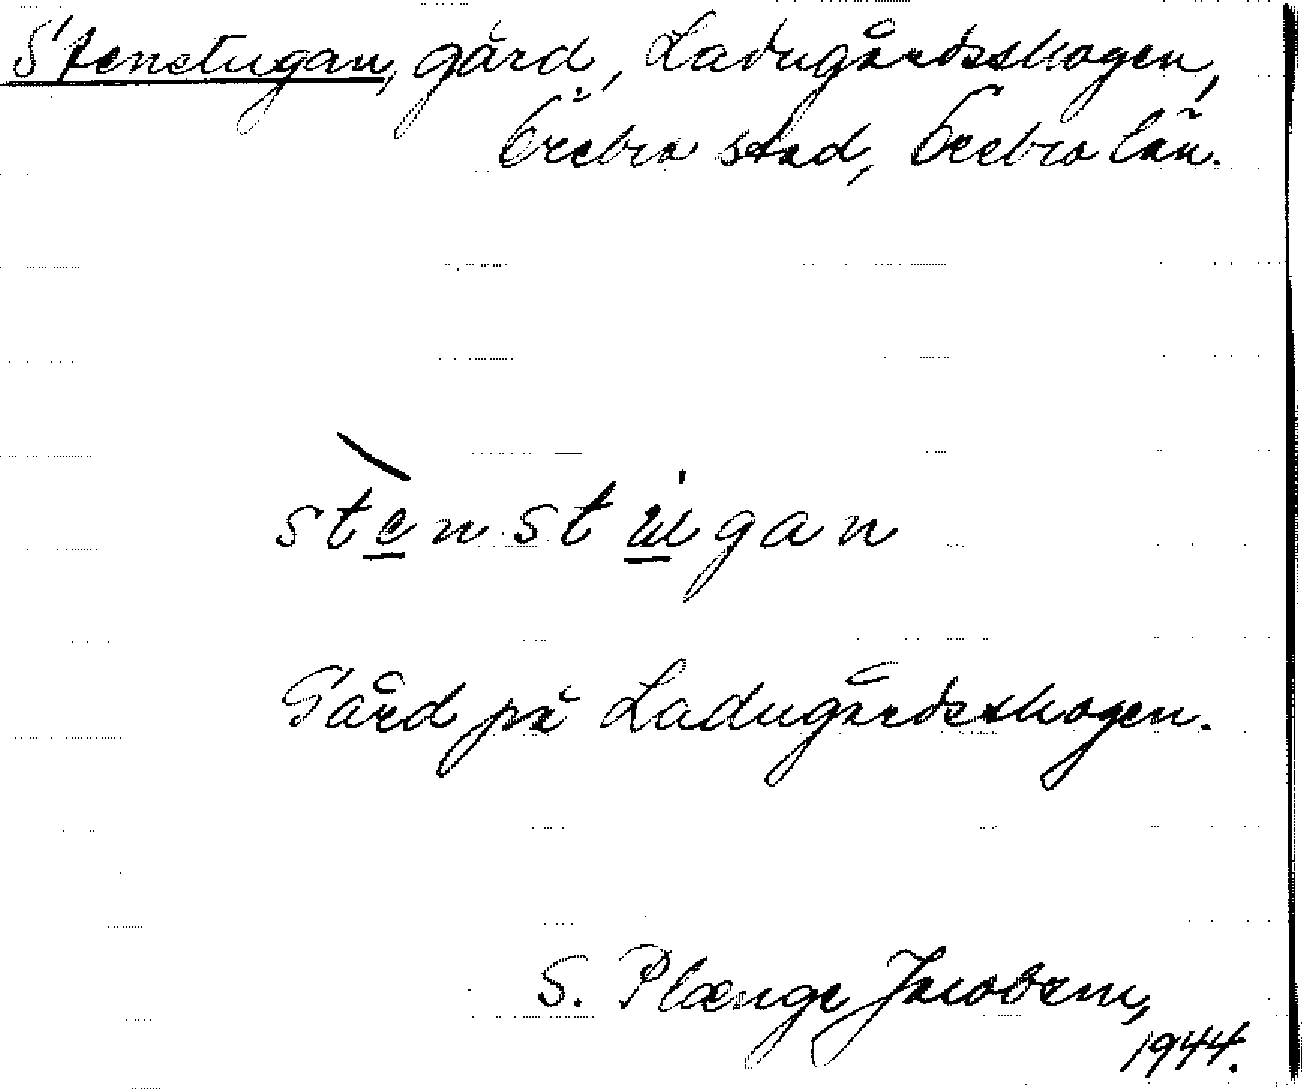 Stenstugan, gård, Ladugårdsskogen,
Örebro stad, Örebro län.
stènstugan
Gård på Ladugårdsskogen.
S. Plænge Jacobsen,
1944.